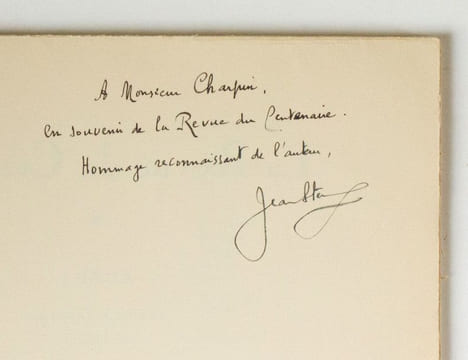 A Monsieur Charpin,
en souvenir de la Revue du Centenaire.
Hommage reconnaissant de l'auteur,
Jean